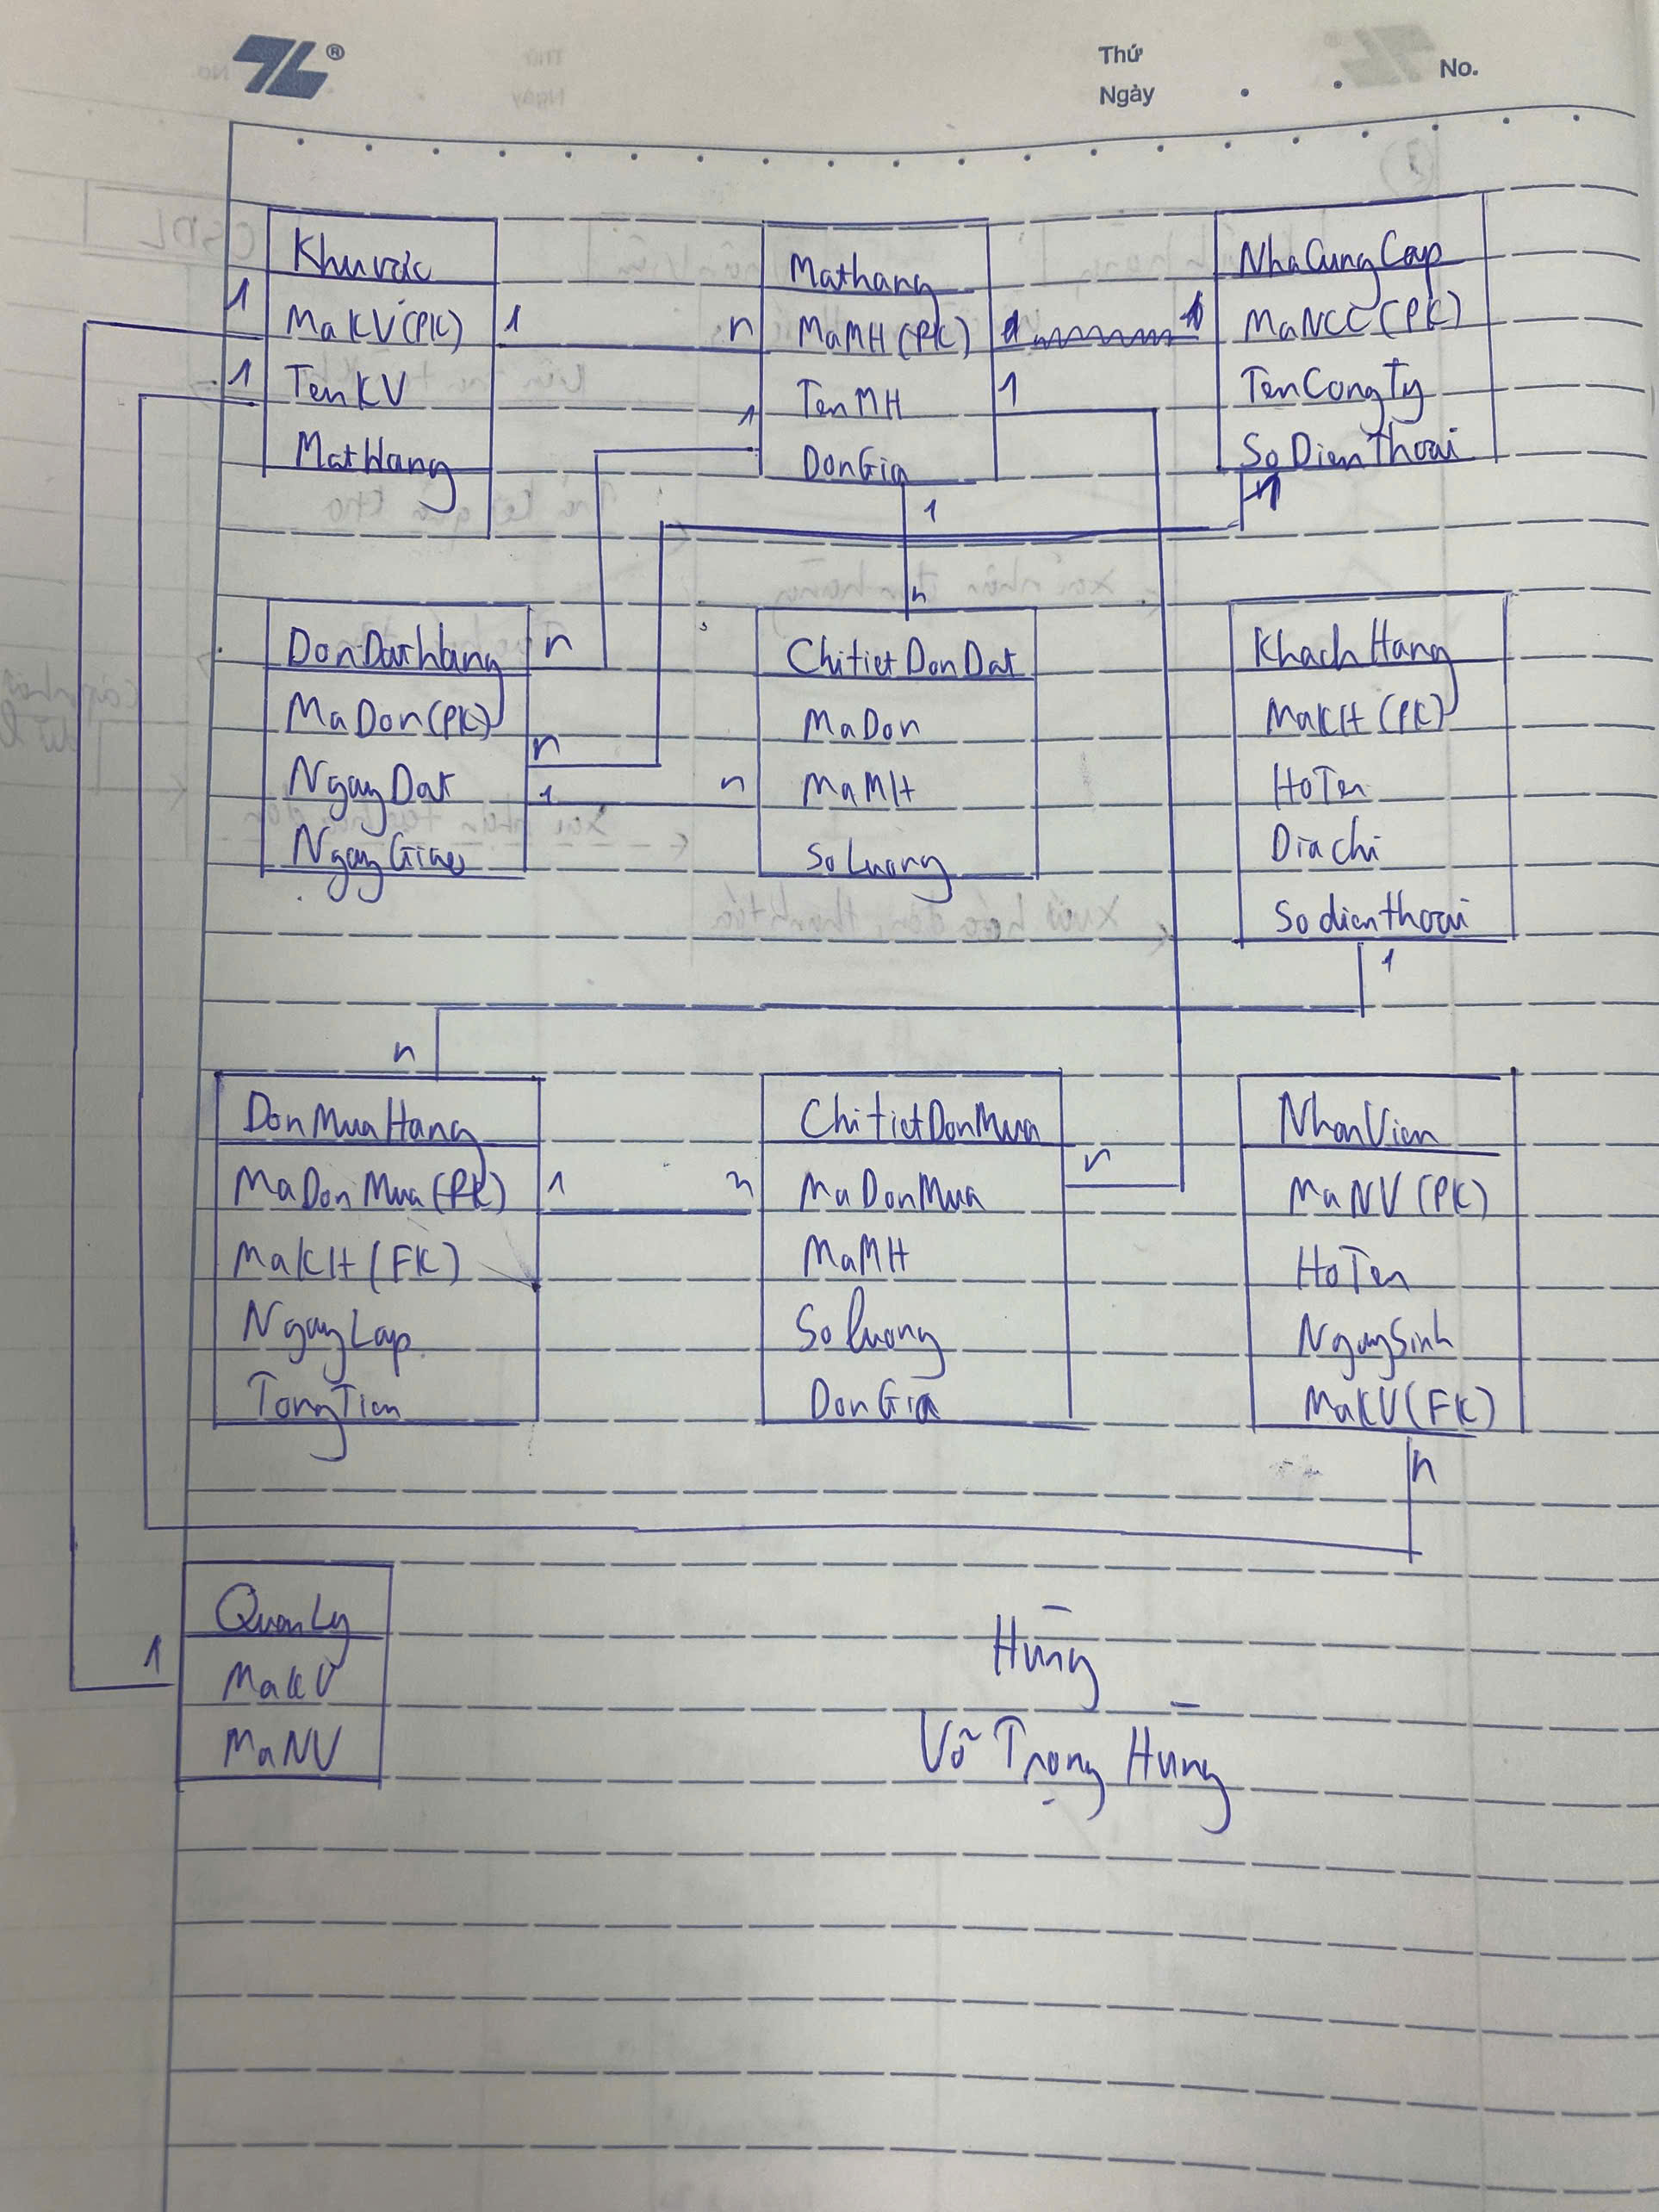 Thứ
Ngày
No.
Khuvưc
MaKV(PK)
TenKV
MatHang
1
1
1
n
Mathang
MaMH(PK)
TenMH
DonGia
1
1
1
NhaCungCap
MaNCC(PK)
TenCongTy
SoDienThoai
DonDathang
MaDon(PK)
NgayDat
NgayGiao
n
n
1
n
n
ChitietDonDat
MaDon
MaMH
SoLuong
KhachHang
MaKH(PK)
HoTen
Diachi
Sodienthoai
1
n
DonMuaHang
MaDonMua(PK)
MaKH(FK)
NgayLap
TongTien
1
n
ChitietDonMua
MaDonMua
MaMH
Soluong
DonGia
n
NhanVien
MaNV(PK)
HoTen
NgaySinh
MaKV(FK)
n
QuanLy
MaKV
MaNV
1
Hùng
Võ Trọng Hùng